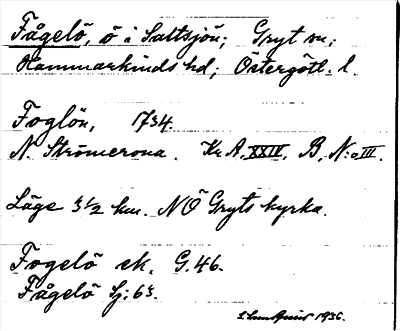 Fågelö, ö i Saltsjön; Gryt sn;
Hammarkinds hd; Östergötl. l.
Foglön, 1734.
N. Strömcrona. Kr A. XXIV, B, N:o III.
Läge 3 1/2 km. NÖ Gryts kyrka.
Fogelö ek. G. 46.
Fågelö Sj: 63.
1936.